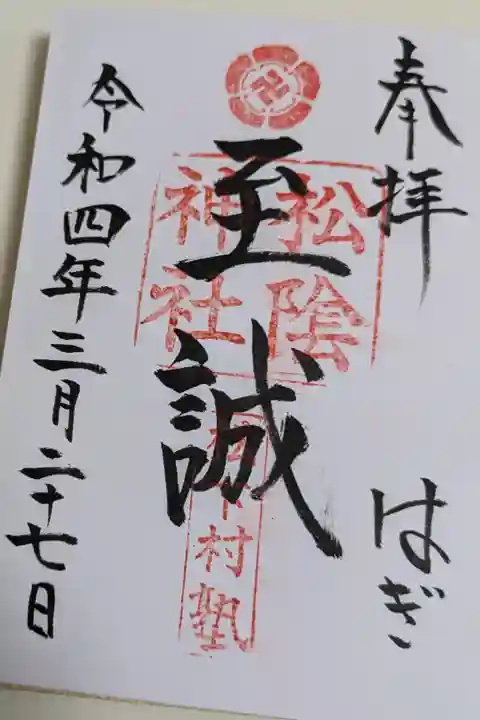 奉拝
はぎ
松陰
神社
至誠
松下村塾
令和四年三月二十七日